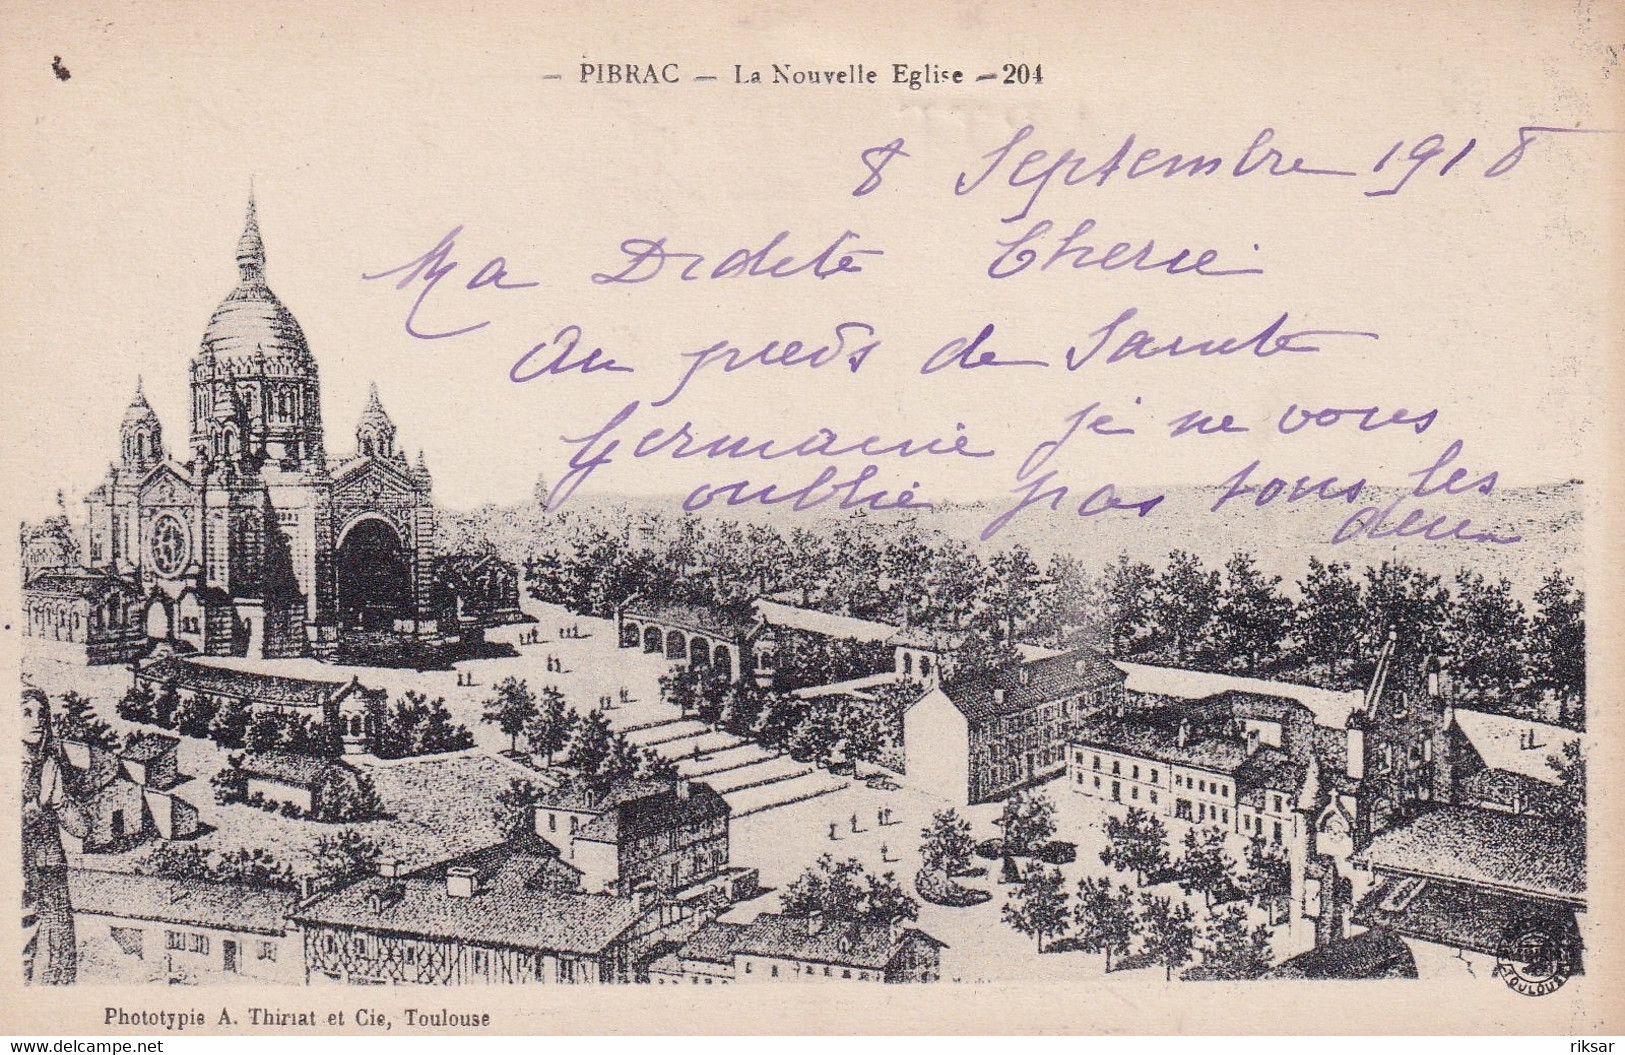 — PIBRAC — La Nouvelle Eglise — 204
8 Septembre 1918
Ma Cherie
Au pieds de Sainte
Germaine je ne vous
oublie pas tous les
deux
TOULOUSE
Phototypie A. Thiriat et Cie, Toulouse
www.delcampe.net
riksar